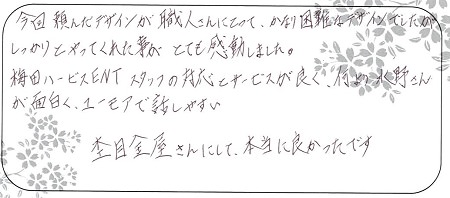 今回頼んだデザインが職人さんにとって、かなり困難なデザインでしたが
しっかりとやってくれた事がとても感動しました。
梅田ハービスENTスタッフの対応とサービスが良く、何より水野さん
が面白く、ユーモアで話しやすい
杢目金屋さんにして、本当に良かったです